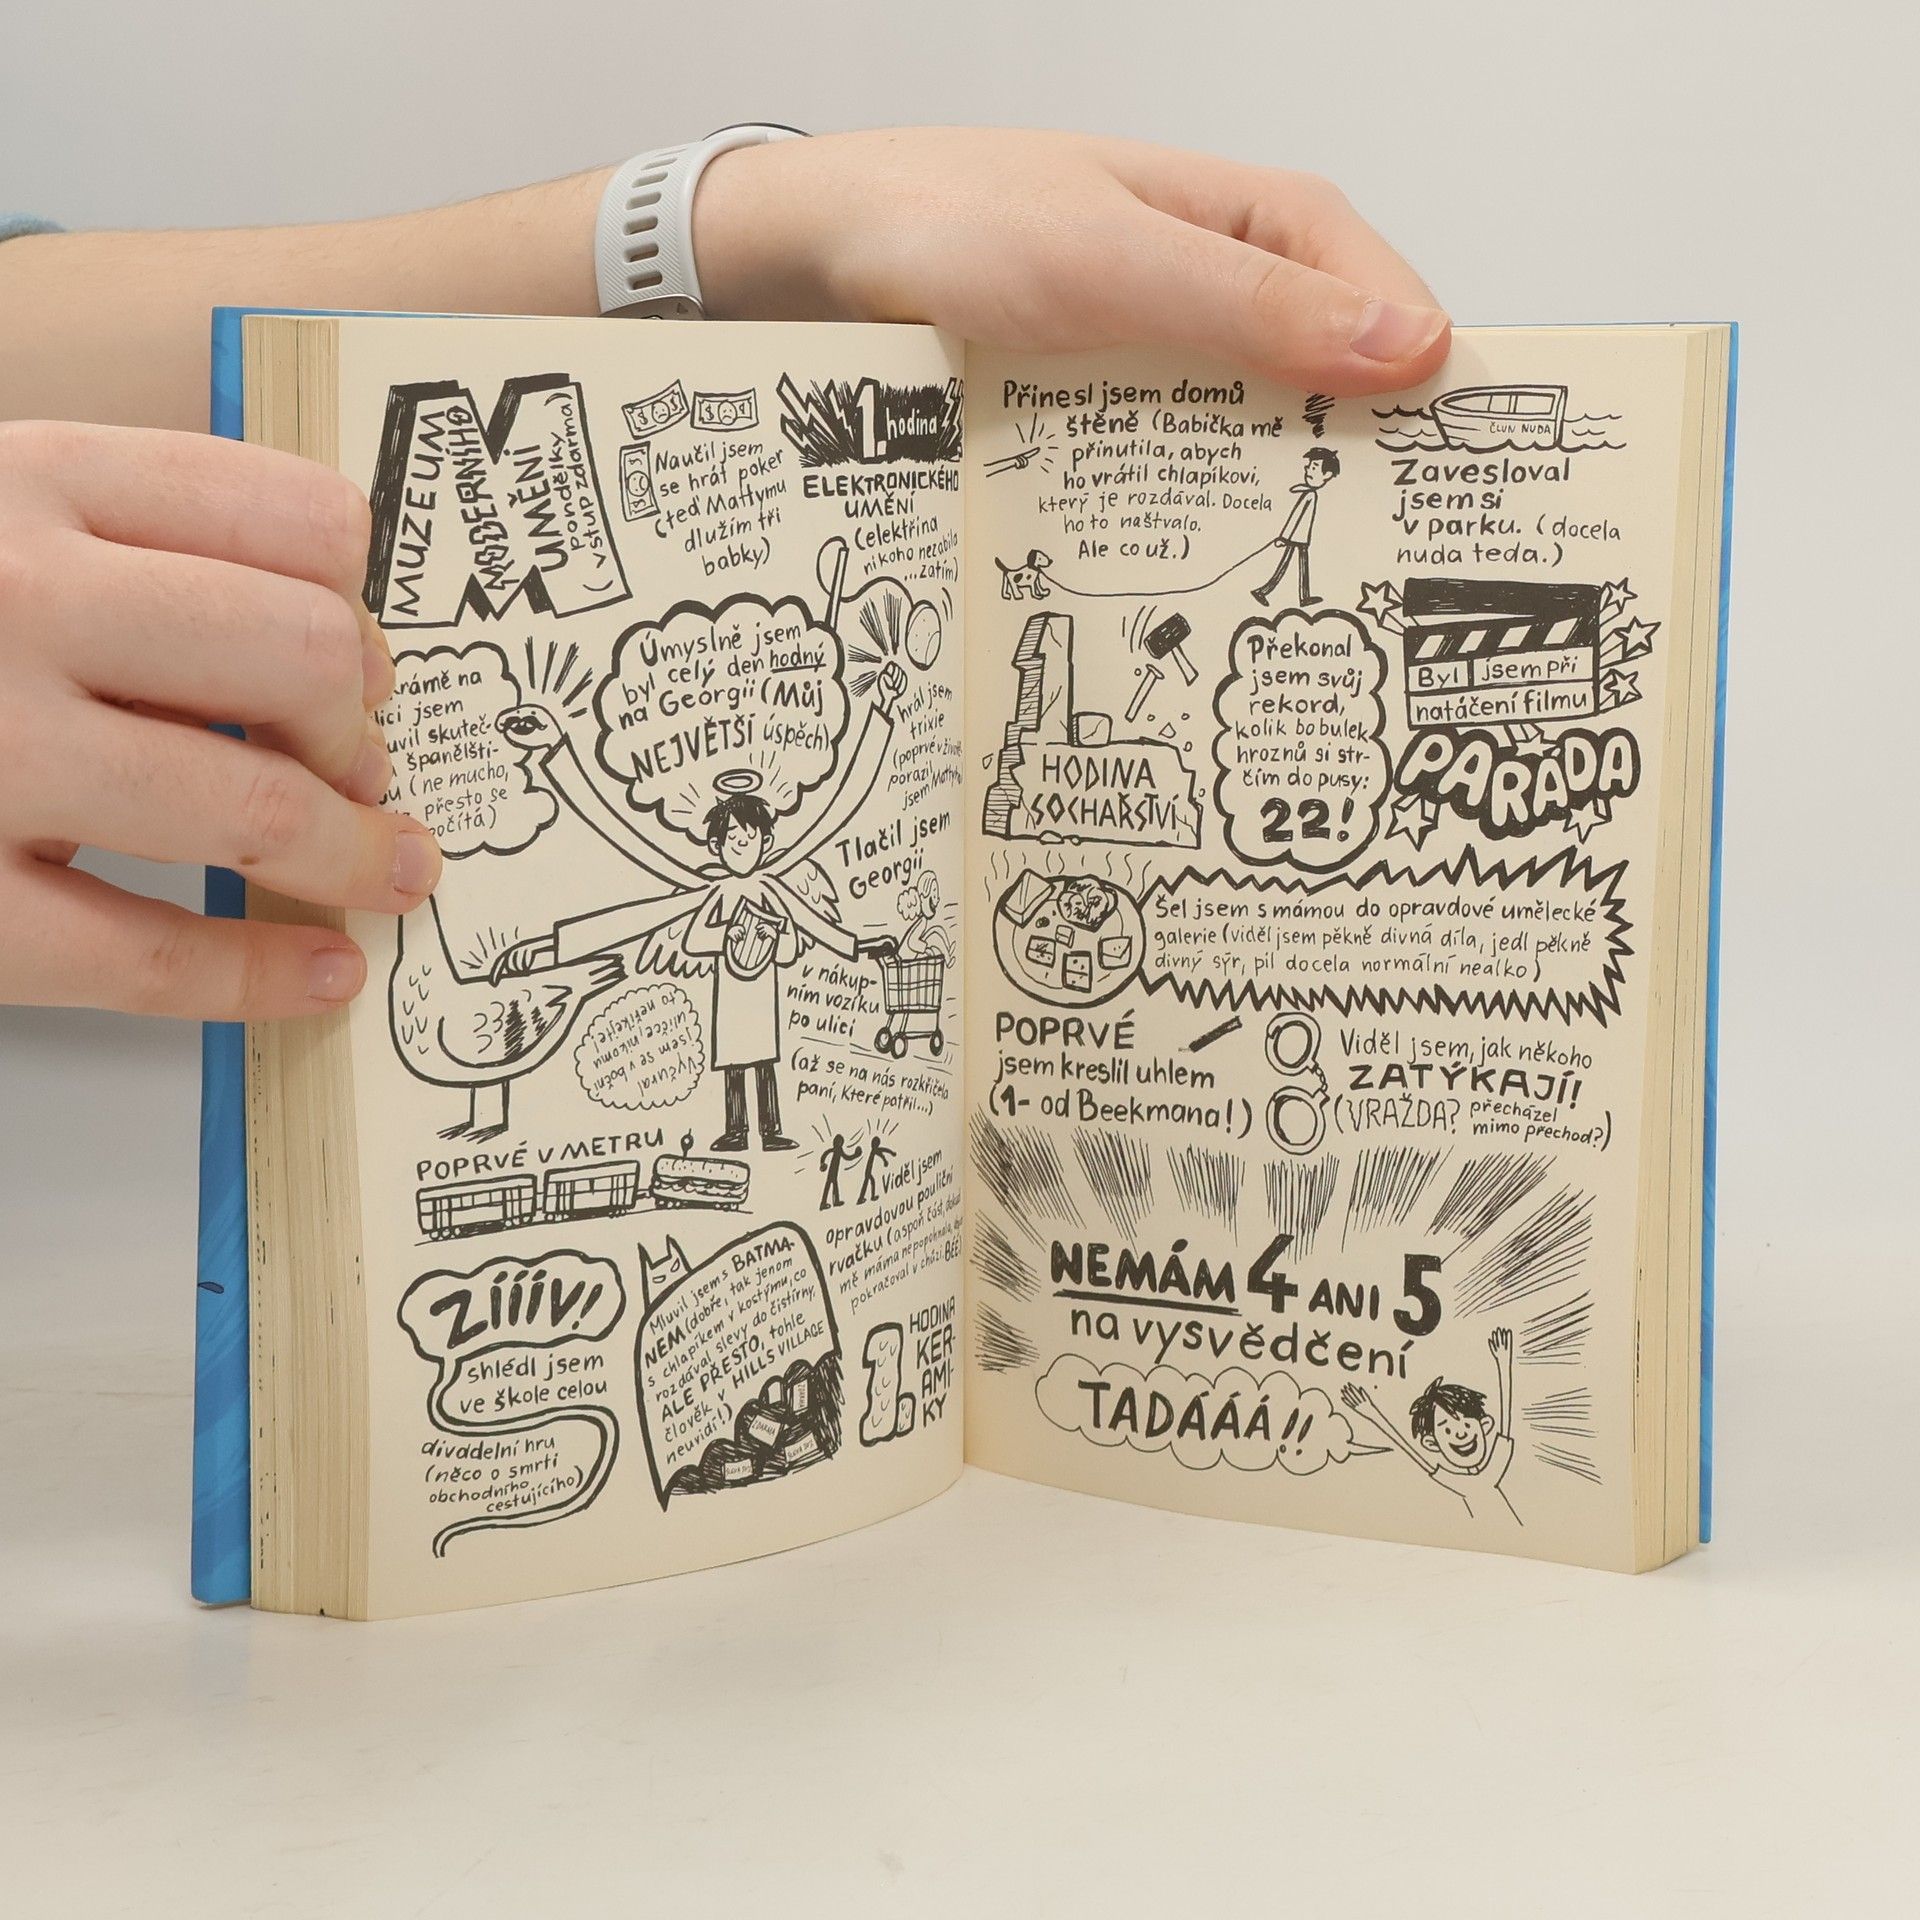 MUZEUM
MODERNÍHO
UMĚNÍ
pondělky
(vstup zdarma)
Naučil jsem
se hrát poker
(teď Mattymu
dlužím tři
babky)
1. hodina
ELEKTRONICKÉHO
UMĚNÍ
(elektřina
nikoho nezabila
...zatím)
krámě na
lici jsem
uvil skuteč-
španělšti-
ou (ne mucho,
přesto se
počítá)
Úmyslně jsem
byl celý den hodný
na Georgii (Můj
NEJVĚTŠÍ úspěch)
hrál jsem
trixie
(poprvé v živo
porazil
jsem Mattyho
Tlačil jsem
Georgii
v nákup-
ním vozíku
po ulici
(až se na nás rozkřičela
paní, které patřil...)
Vyčural
jsem se v boční
uličce, nikomu
to neříkejte!
POPRVÉ V METRU
Viděl jsem
opravdovou pouliční
rvačku (aspoň část,
mě máma nepopohnala,
pokračoval v chůzi. BÉÉ
ZÍÍÍV!
shlédl jsem
ve škole celou
divadelní hru
(něco o smrti
obchodního
cestujícího)
Mluvil jsem s BATMA-
NEM (dobře, tak jenom
s chlapíkem v kostýmu, co
rozdával slevy do čistírny,
ALE PŘESTO, tohle
člověk v HILLS VILLAGE
neuvidí!)
1. HODINA
KER-
AMI-
KY
Přinesl jsem domů
štěně (Babička mě
přinutila, abych
ho vrátil chlapíkovi,
který je rozdával. Docela
ho to naštvalo.
Ale co už.)
ČLUN NUDA
Zavesloval
jsem si
v parku. (docela
nuda teda.)
1.
HODINA
SOCHAŘSTVÍ
Překonal
jsem svůj
rekord,
kolik bobulek
hroznů si str-
čím do pusy:
22!
Byl jsem při
natáčení filmu
PARÁDA
Šel jsem s mámou do opravdové umělecké
galerie (viděl jsem pěkně divná díla, jedl pěkně
divný sýr, pil docela normální nealko)
POPRVÉ
jsem kreslil uhlem
(1- od Beekmana!)
Viděl jsem, jak někoho
ZATÝKAJÍ!
(VRAŽDA? přecházel
mimo přechod?)
NEMÁM 4 ANI 5
na vysvědčení
TADÁÁÁ!!